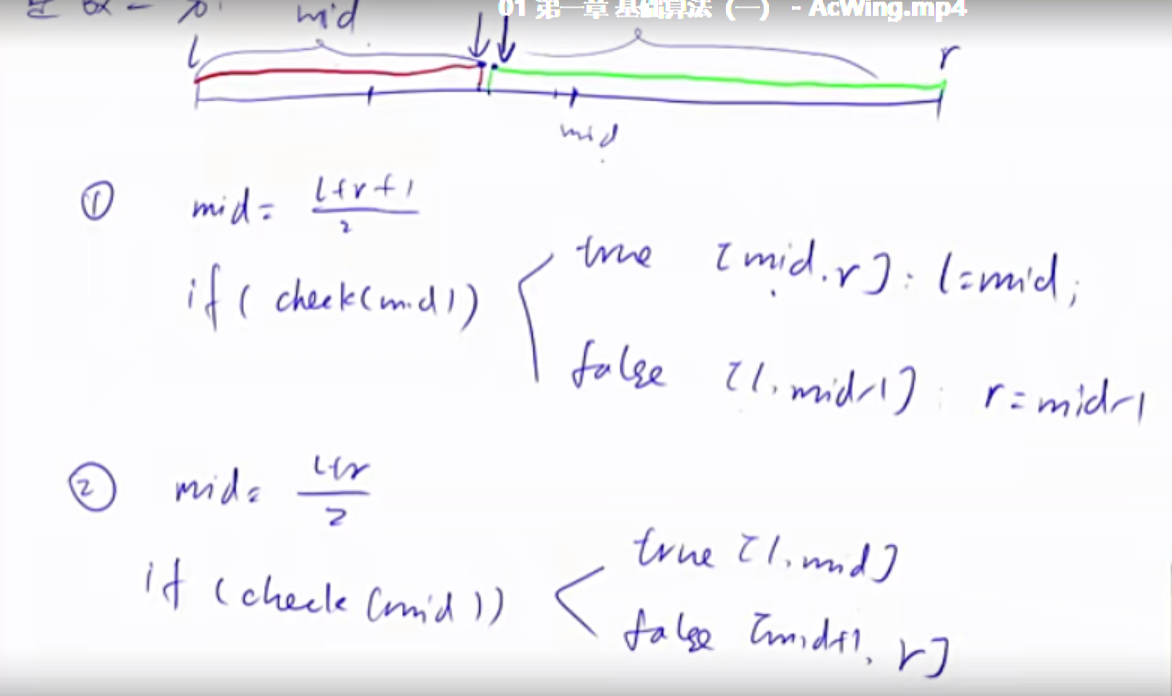 01 第一章 基础算法（一） - AcWing.mp4
mid
l r
mid
① mid = l+r+1 / 2
if ( check(mid) )
true [mid, r] : l=mid;
false [l, mid-1] : r=mid-1
② mid = l+r / 2
if (check(mid))
true [l, mid]
false [mid+1, r]